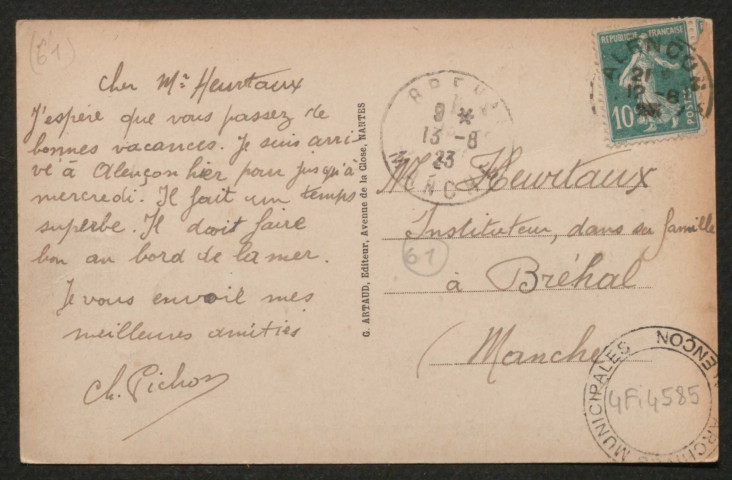 (61)
Cher Mr Heurtaux
J'espère que vous passez de
bonnes vacances. Je suis arri-
vé à Alençon hier pour jusqu'à
mercredi. Il fait un temps
superbe. Il doit faire
bon au bord de la mer.
Je vous envoie mes
meilleures amitiés
Ch. Pichon
G. ARTAUD, Editeur, Avenue de la Close, NANTES
13 - 8
23
REPUBLIQUE FRANÇAISE
10
POSTES
ALENCON
21
12 - 8
Mr Heurtaux
Instituteur, dans sa famille
61
à Bréhal
(Manche
ARCHIVES MUNICIPALES ALENÇON
4Fi4585